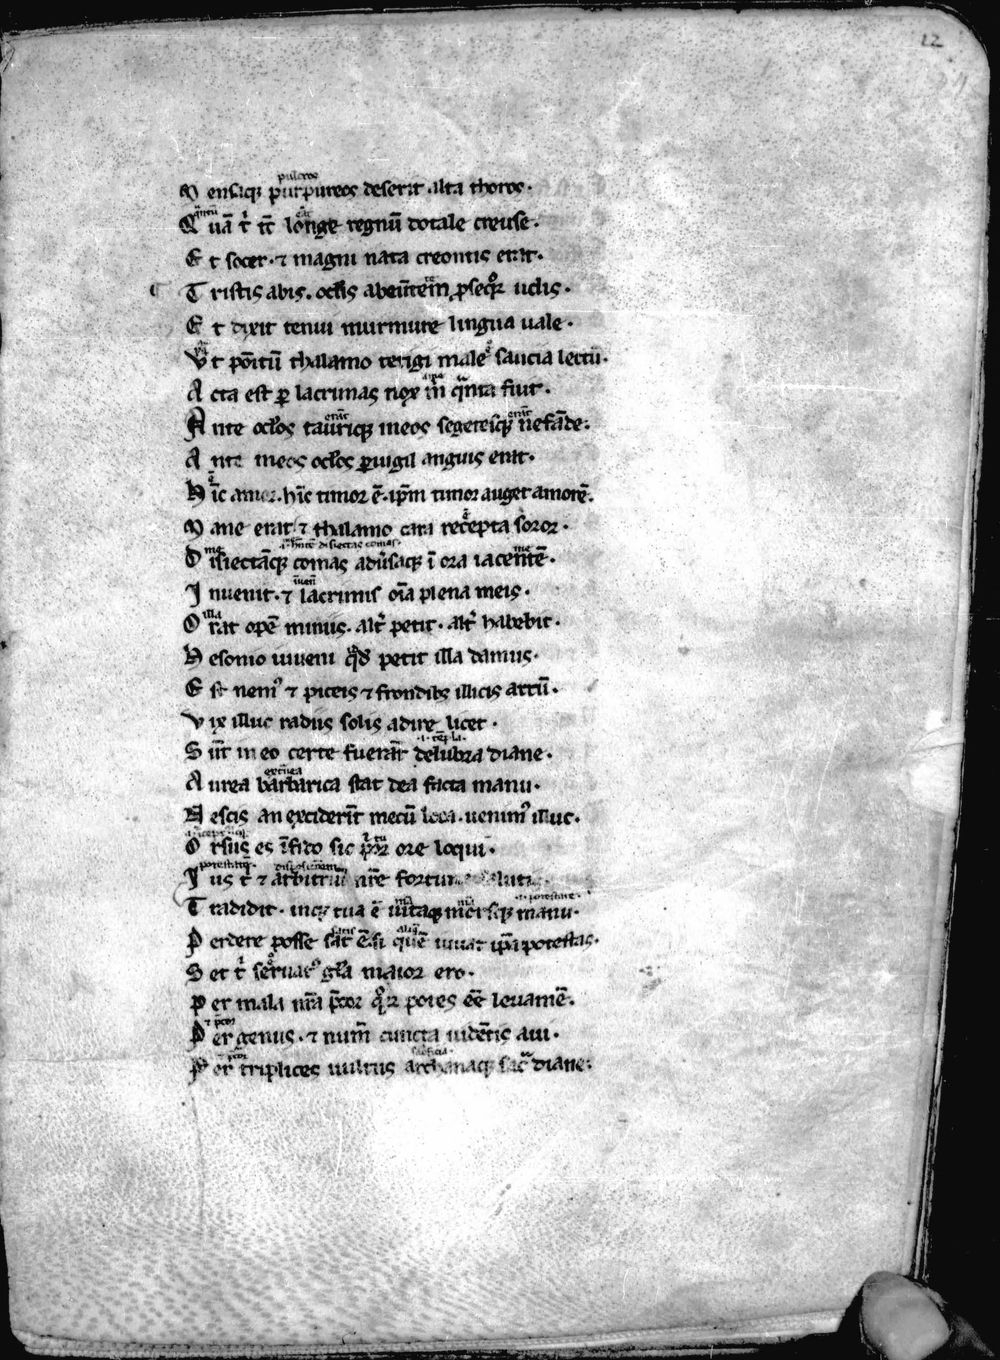 22
pulcros
M ensaq; purpureos deserit alta thoros·
Q uā t̄ tc̄ longe regnū dotale creuse·
E t socer· ⁊ magni nata creontis erat·
T ristis abis· ocl̄is abeūtem ꝓseqͦr udis·
E t dixit tenui murmure lingua uale·
V t pōitū thalamo tetigi male saucia lectū·
A cta est ꝑ lacrimas nox m̄ qͣnta fuit·
erāt erāt
A nte ocl̄os tauriq; meos segetesq; nefāde:
A nte meos ocl̄os ꝑuigil anguis erat·
H īc amor· hīc timor ē· ip̄m timor auget amorē·
M ane erat ⁊ thalamo cara recepta soror·
disiectas comas
D isiectāq; comas aduīsaq; ī ora iacentē·
I nuenit· ⁊ lacrimis oīa plena meis·
illa
O rat opē minus· alt̄ petit· alt̄ habebit·
H esonio iuueni qͦd petit illa damus·
E st nemꝰ ⁊ piceis ⁊ frondibꝫ illicis atrū·
V ix illuc radiis solis adire licet·
·i· tēpla·
S ūt in eo certe fuerāt delubra diane·
A urea barbarica stat dea facta manu·
N escis an exciderīt mecū loca· uenimꝰ illuc·
O rsus es īfido sic pͥor ore loqui·
I us t̄ ⁊ arbitriū nr̄e
·i· potestate·
T radidit· inq; tua ē uitaq; morsq; manu·
satis aliq̄
P erdere posse sat ē· si quē iuuat ip̄a potestas·
S et t̄ seruatꝰ gl̄a maior ero·
P er mala nr̄a p̄cor qͦꝝ potes eē leuamē·
⁊ p̄cor
P er genus· ⁊ num̄ cuncta uidētis aui·
⁊ p̄cor
P er triplices uultus archanaq; sacͣ diane: